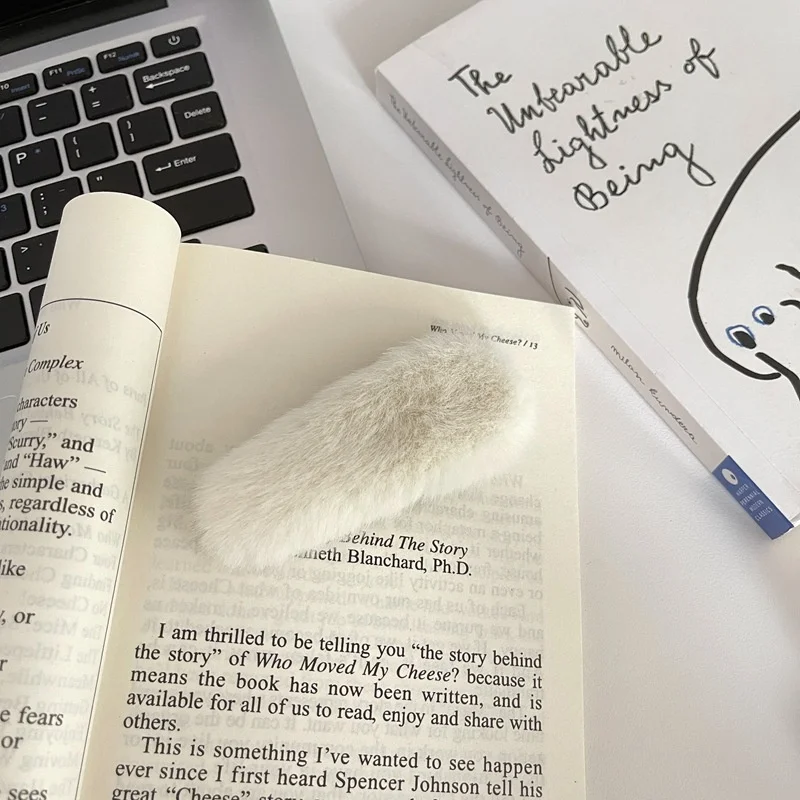 F11 PrtSc
F12 NumLk
Insert
Backspace
Delete
Enter
P
The
Unbearable
Lightness of
Being
The Unbearable Lightness of Being
milan kundera
HARPER
PERENNIAL
MODERN
CLASSICS
Us
Complex
characters
Scurry,” and
and “Haw” —
simple and
regardless of
like
or
fears
or
sees
Who Moved My Cheese? / 13
Behind The Story
Blanchard, Ph.D.
I am thrilled to be telling you “the story behind
the story” of Who Moved My Cheese? because it
means the book has now been written, and is
available for all of us to read, enjoy and share with
others.
This is something I’ve wanted to see happen
ever since I first heard Spencer Johnson tell his
great “Cheese”